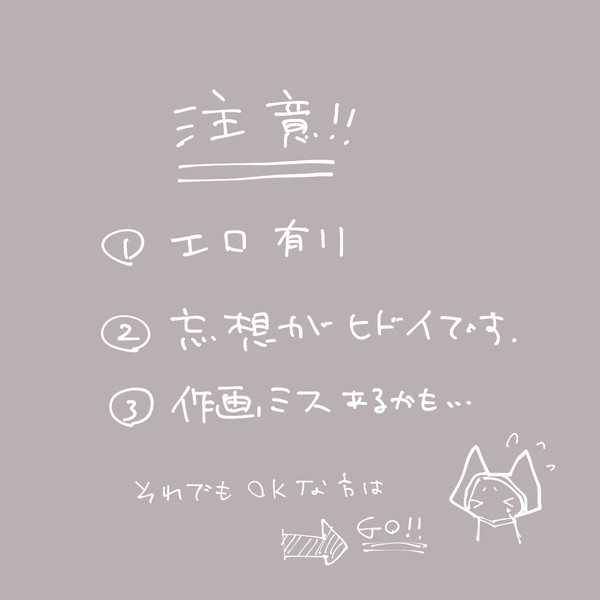 注意!!
① エロ有り
② 妄想がヒドイです.
③ 作画ミスあるかも…
それでもOKな方は
GO!!